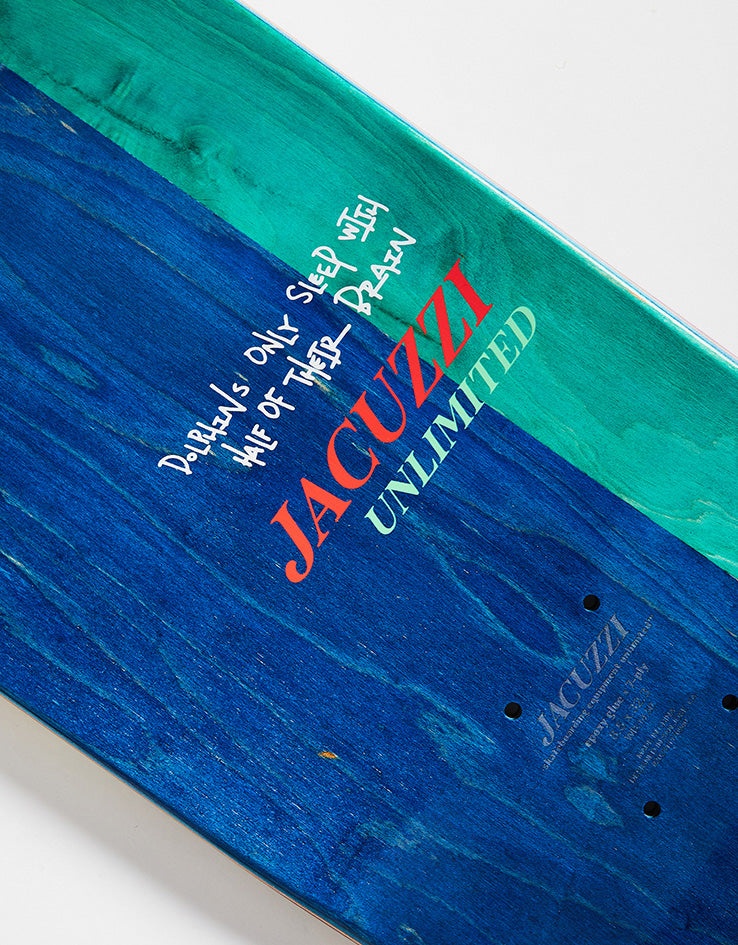 DOLPHINS ONLY SLEEP WITH
HALF OF THEIR BRAIN
JACUZZI
UNLIMITED
JACUZZI
skateboarding equipment unlimited™
epoxy glue x 7-ply